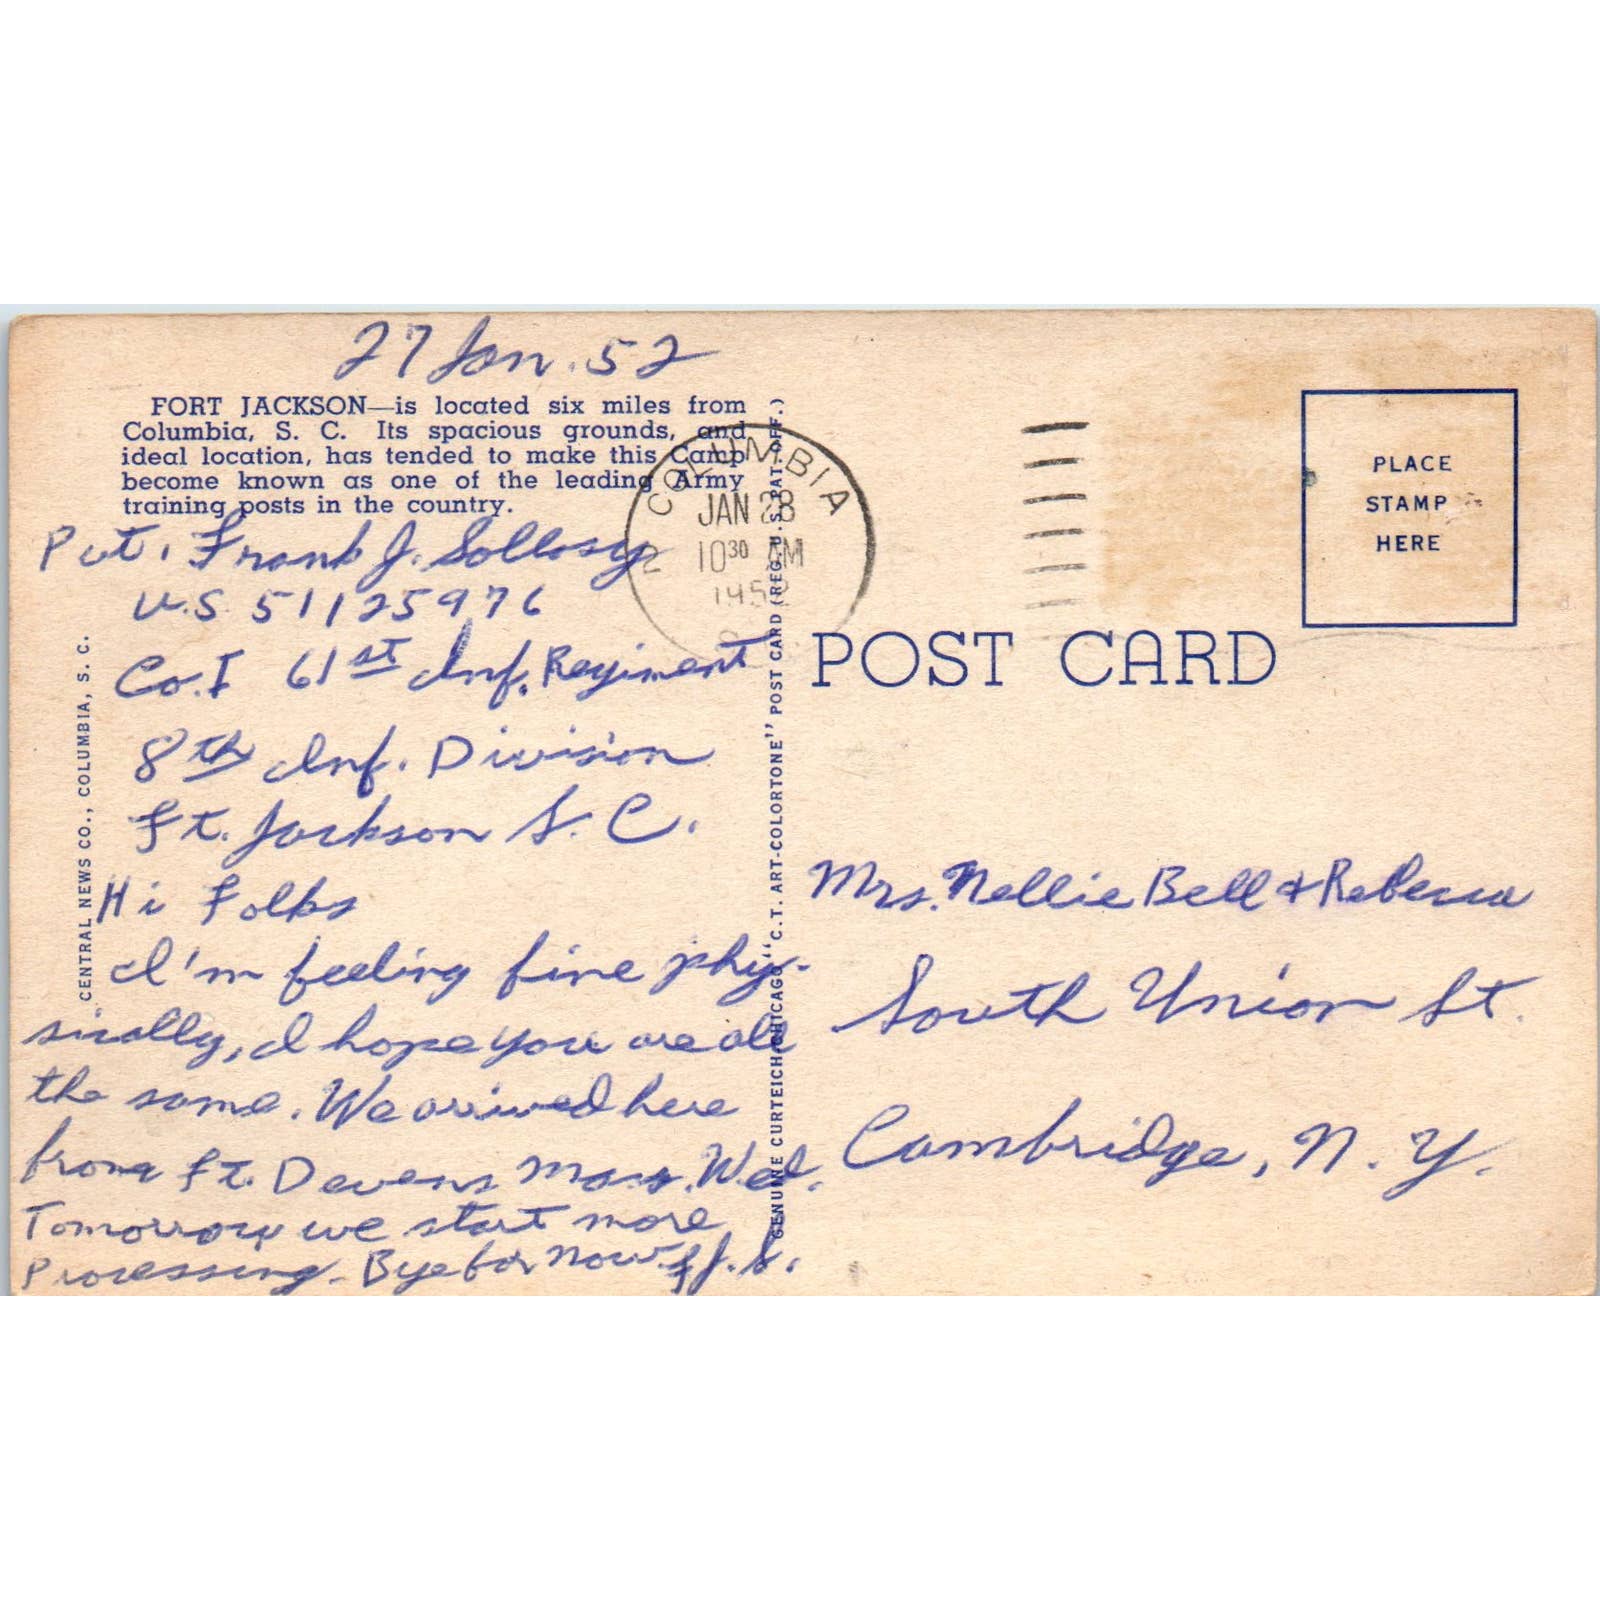 27 Jan. 52
FORT JACKSON—is located six miles from
Columbia, S. C. Its spacious grounds, and
ideal location, has tended to make this Camp
become known as one of the leading Army
training posts in the country.
Pvt. Frank J. Sollosy
U.S 51125976
Co. I 61st Inf. Regiment
8th Inf. Division
Ft. Jackson S. C.
Hi Folks
I'm feeling fine phy-
sically, I hope you are all
the same. We arrived here
from Ft. Devens Mass. Wed.
Tomorrow we start more
Processing. Bye for Now. F J. S.
CENTRAL NEWS CO., COLUMBIA, S. C.
GENUINE CURTEICH-CHICAGO "C.T. ART-COLORTONE" POST CARD (REG. U.S. PAT. OFF.)
COLUMBIA
JAN 28
10 30 AM
1952
2
PLACE
STAMP
HERE
POST CARD
Mrs. Nellie Bell & Rebecca
South Union St.
Cambridge, N. Y.